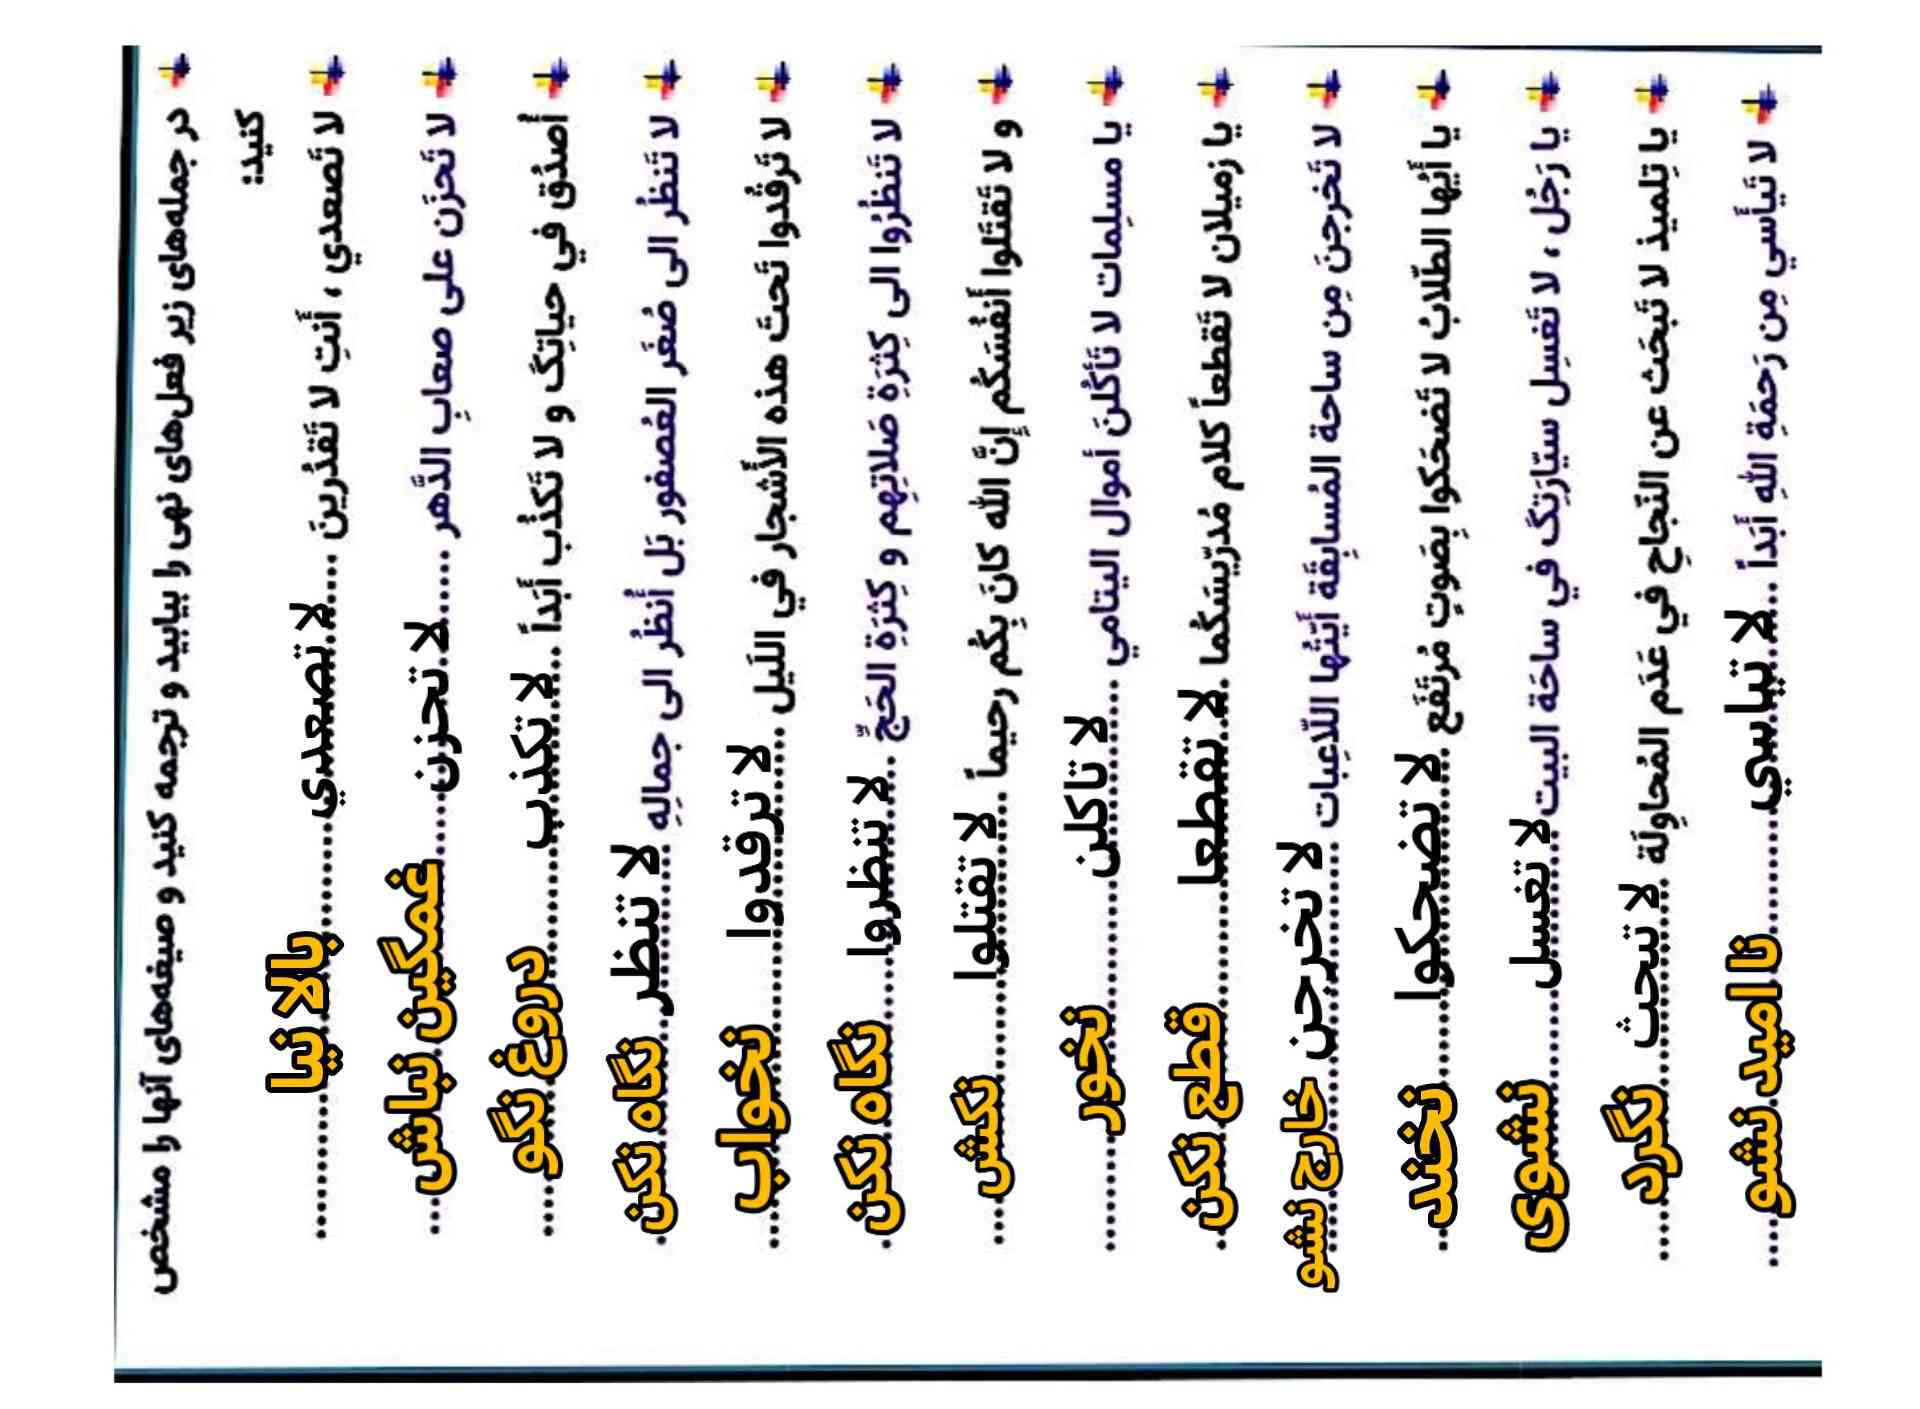 در جمله‌های زیر فعل‌های نهی را بیابید و ترجمه کنید و صیغه‌های آنها را مشخص
کنید:
لا تَصعدي ، أَنتِ لا تَقدُرینَ ........ لا تصعدي ........ بالا نیا ........
لا تَحزَن علی صعابِ الدَّهر ........ لا تحزن ........ غمگین نباش ...
أُصدُق في حیاتِکَ و لا تَکذُب أَبَداً ........ لا تکذب ........ دروغ نگو ......
لا تَنظُر الی صُغَر العُصفور بَل أُنظُر الی جمالِهِ ........ لا تنظر ........ نگاه نکن .
لا تَرقُدوا تَحتَ هذه الأَشجار في اللیل ........ لا ترقدوا ........ نخواب ...
لا تَنظُرُوا الی کِثرَةِ صَلاتِهِم و کِثرَةِ الحَجِّ ........ لا تنظروا ........ نگاه نکن .
و لا تَقتَلوا أَنفُسَکُم إِنَّ الله کانَ بِکُم رحیماً ........ لا تقتلوا ........ نکش ....
یا مسلِمات لا تَأکُلنَ أموال الیتامي ........ لا تاکلن ........ نخور ........
یا زمیلان لا تَقطعاً کلام مُدرِّیسَکُما ........ لا تقطعا ........ قطع نکن ..
لا تَخرجنَ مِن ساحة المُسابِقَة أَیَّتُها اللّاعِبات ........ لا تخرجن ........ خارج نشو
یا أَیُّها الطّلّابُ لا تَضحَکوا بِصَوتٍ مُرتَفَع ........ لا تضحکوا ........ نخند ..
یا رَجُل ، لا تَغسِل سیّارَتِکَ في ساحَة البیت ........ لا تغسل ........ نشوی
یا تِلمیذ لا تَبحَث عن النَّجاحِ في عَدَم المُحاوِلَة ........ لا تبحث ........ نگرد .....
لا تَیأَسي مِن رَحمَةِ اللهِ أَبَداً ........ لا تیاسي ........ نا امید نشو ....